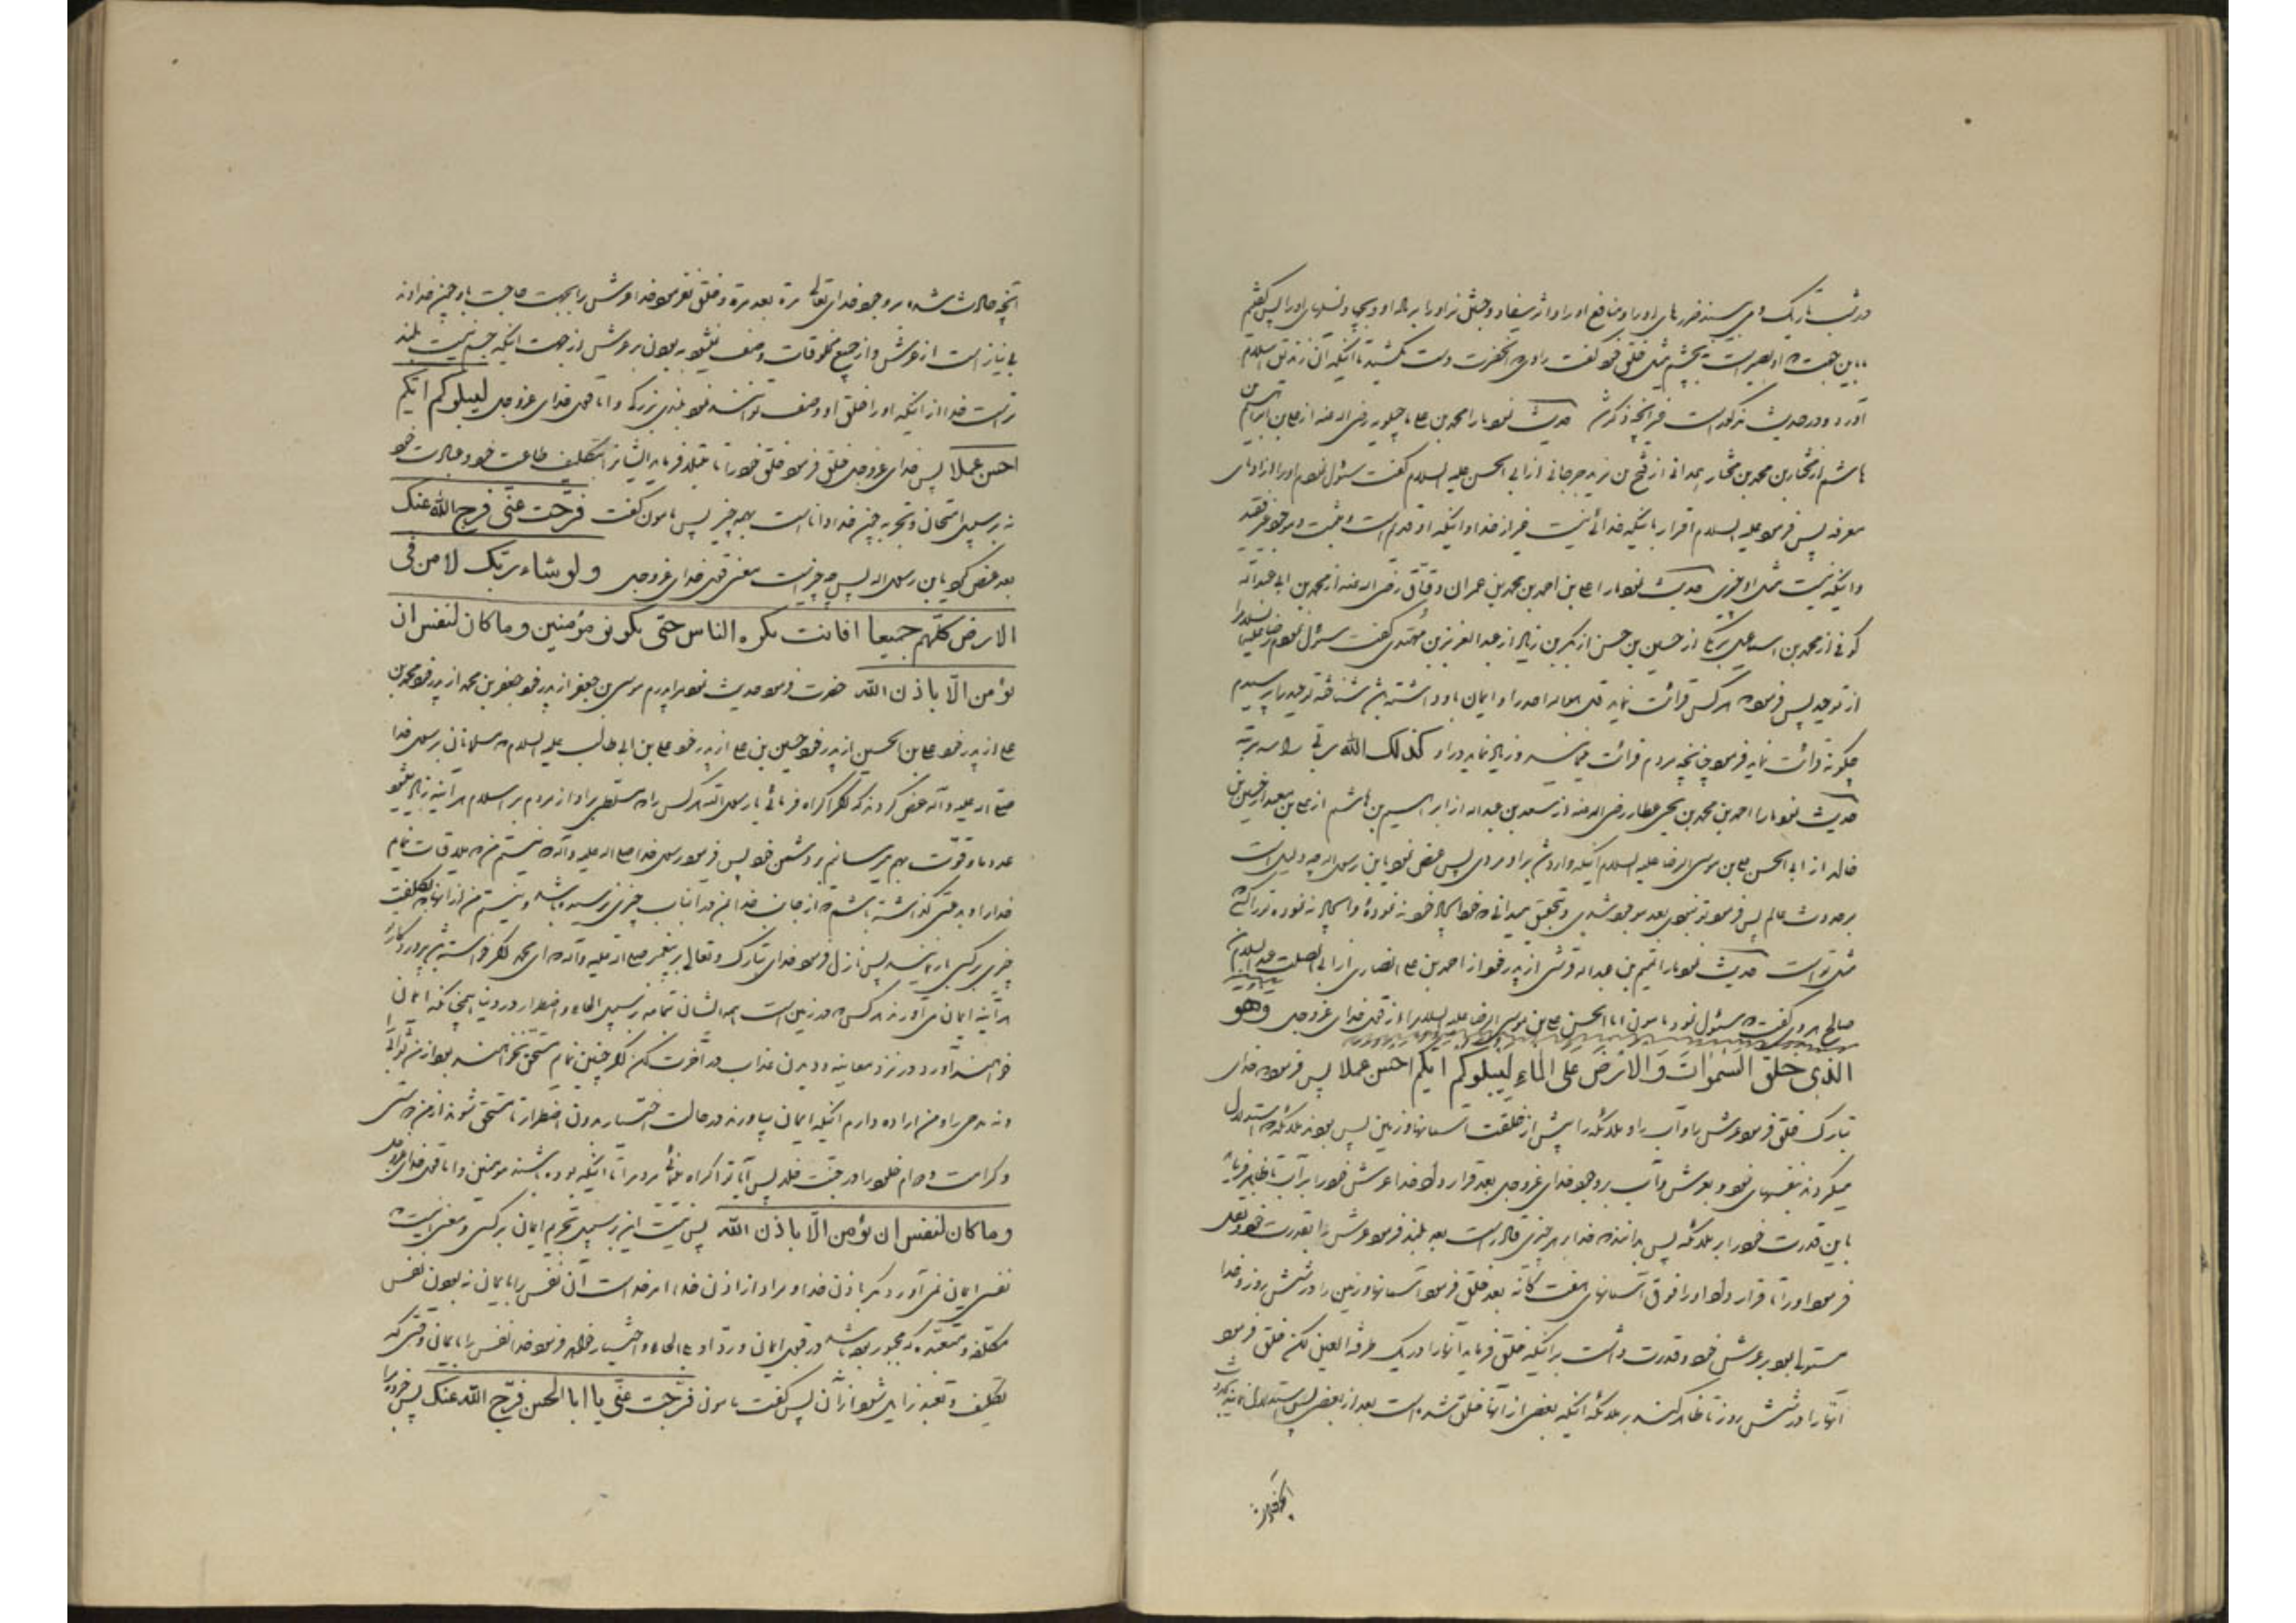 در شب تاریک و می بیند ضررهای او را و منافع او را و اثر سفاد و نسلهای او را پس گفتیم
باین جهت که او بصیر است نه بچشم مثل خلق خود گفت راوی که آنحضرت دست نکشید تا اینکه آن زندیق اسلام
آورد و در حدیث مذکور است غیر آنچه ذکر شد حدیث نمود ما را محمد بن علی ماجیلویه رضی الله عنه از علی بن ابراهیم بن
هاشم از مختار بن محمد بن مختار همدانی از فتح بن یزید جرجانی از ابی الحسن علیه السلام گفت سئوال نمودم او را از ادنای
معرفة پس فرمود علیه السلام اقرار باینکه خدائی نیست غیر از خدا و اینکه او قدیم است و مثبت و موجود غیر فقید
و اینکه نیست مثل او چیزی حدیث نمود ما را علی بن احمد بن محمد بن عمران دقاق رضی الله عنه از محمد بن ابی عبدالله
کوفی از محمد بن اسمعیل برمکی از حسین بن حسن از بکر بن زیاد از عبد العزیز بن مهتدی گفت سئوال نمودم رضا علیه السلام را
از توحید پس فرمود که هر کس قرائت نماید قل هو الله احد را و ایمان باو داشته باشد شناخته توحید را پرسیدم
چگونه قرائت نماید فرمود چنانچه مردم قرائت مینمایند و زیاد نماید در او کذلک الله ربی
حدیث نمود ما را احمد بن محمد بن یحیی عطار رضی الله عنه از سعد بن عبدالله از ابراهیم بن هاشم از علی بن معبد از حسین بن
خالد از ابی الحسن علی بن موسی الرضا علیه السلام اینکه وارد شد بر او مردی پس عرض نمود یابن رسول الله چه دلیل است
بر حدوث عالم پس فرمود تو نبودی بعد موجود شدی و بتحقیق میدانی که خود ایجاد خود ننودۀ و ایجاد ننوده تو را کسیکه
مثل تو است حدیث نمود ما را تمیم بن عبدالله قرشی از پدر خود از احمد بن علی انصاری از ابی الصلت عبدالسلام بن
صالح هروی گفت که سئوال نمود مامون ابا الحسن علی بن موسی الرضا علیه السلام را از قول خدای عزوجل وهو
الذی خلق السموات و الارض علی الماء لیبلوکم ایکم احسن عملا پس فرمود که خدای
تبارک خلق فرمود عرش را و آب را و ملائکه را پیش از خلقت آسمانها و زمین پس بودند ملائکه که استدلال
میکردند بنفسهای خود و بعرش و آب بر وجود خدای عزوجل بعد قرار داد خدا عرش خود را بر آب تا ظاهر فرماید
باین قدرت خود را بر ملائکه پس بدانند که خدا بر هر چیزی قادر است بعد بلند فرمود عرش را بقدرت خود و نقل
فرمود او را تا قرار داد او را فوق آسمانهای هفت گانه بعد خلق فرمود آسمانها و زمین را در شش روز و خدا
مستولی بود بر عرش خود و قدرت داشت بر اینکه خلق فرماید آنها را در یک طرفة العین لکن خلق فرمود
آنها را در شش روز تا ظاهر کند بر ملائکه اینکه بعضی از آنها خلق شده است بعد از بعضی پس استدلال نمایند
آنچه حادث شده بر وجود خدای تعالی مرة بعد مرة و خلق نفرمود خدا عرش را بجهت حاجت باو چون خداوند
بی نیاز است از عرش و از جمیع مخلوقات وصف نمیشود به بودن بر عرش از جهت اینکه جسم نیست بلند
تر است خدا از اینکه او را خلق او وصف توانند نمود بلندی بزرگ و اما قول خدای عزوجل لیبلوکم ایکم
احسن عملا پس خدای عزوجل خلق فرمود خلق خود را تا مبتلا فرماید ایشانرا بتکلیف طاعت خود و عبادت خود
نه بر سبیل امتحان و تجربه چون خدا دانا است بهمه چیز پس مامون گفت فرّجت عنّی فرج الله عنک
بعد عرض کرد یابن رسول الله پس چه چیز است معنی قول خدای عزوجل ولو شاء ربّک لامن فی
الارض کلّهم جمیعا افانت تکره الناس حتی یکونو مؤمنین و ما کان لنفس ان
تؤمن الّا باذن الله حضرت فرمود حدیث نمود مرا پدرم موسی بن جعفر از پدر خود جعفر بن محمد از پدر خود محمد بن
علی از پدر خود علی بن الحسین از پدر خود حسین بن علی از پدر خود علی بن ابی طالب علیه السلام که مسلمانان برسول خدا
صلی الله علیه و آله عرض کردند که اگر اکراه فرمائی یا رسول الله هر کس را که مسلطی بر او از مردم بر اسلام هر آینه زیاد میشود
عدد ما و قوّت بهم میرسانیم بر دشمن خود پس فرمود رسول خدا صلی الله علیه و آله که نیستم من که ملاقات نمایم
خدا را و بدعتی گذاشته باشم که از جانب خدا من در آنباب چیزی نرسیده باشد و نیستم من از آنهائیکه تکلیف
چیزی بر کسی نمایند پس نازل فرمود خدای تبارک و تعالی بر پیغمبر صلی الله علیه و آله که ای محمد اگر خواسته باشد پروردگار تو
هر آینه ایمان می آورند هر کس که در زمین است همه ایشان تماما بر سبیل الجاء و اضطرار در دنیا همچنانکه ایمان
خواهند آورد در نزد معاینه و دیدن عذاب در آخرت لکن اگر چنین نمایم مستحق نخواهند بود از من ثوابی
و نه مدحی را و من اراده دارم اینکه ایمان بیاورند در حالت اختیار بدون اضطرار تا مستحق شوند از من
و کرامت و دوام خلود را در جنت خلد پس آیا تو اکراه مینمائی مردم را تا اینکه بوده باشند مؤمنین و اما قول خدای عزوجل
و ما کان لنفس ان تؤمن الّا باذن الله پس نیست این بر سبیل تحریم ایمان بر کسی و معنی اینست که
نفسی ایمان نمی آورد مگر باذن خدا و مراد از اذن خدا امر خدا است آن نفس را بایمان نه بودن نفس
مکلفه و متعبده که مجبور بوده باشد در قبول ایمان و ردّ او بالجاء و اختیار ظاهر فرمود خدا نفس را بایمان وقتی که
تکلیف و تعبد زایل شود از آن پس گفت مامون فرّجت عنّی یا ابا الحسن فرّج الله عنک پس خبر ده مرا